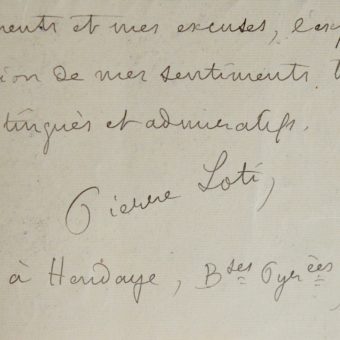 ments et mes excuses, l'exp
ion de mes sentiments t
tingués et admiratifs.
Pierre Loti,
à Hendaye, Bses Pyrées,